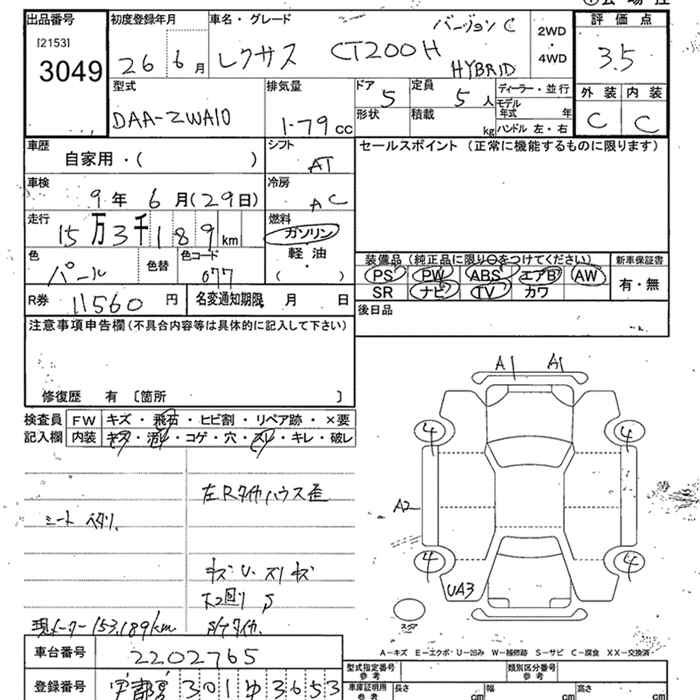 出品番号
[2153]
3049
初度登録年月
26 6 月
車名・グレード
バージョン C
レクサス CT200H
HYBRID
2WD
・
4WD
評価点
3.5
外装 内装
C C
型式
DAA-ZWA10
排気量
1.79 cc
ドア
5
定員
5 人
形状
積載
kg
ディーラー・並行
モデル年式 年
ハンドル 左・右
車歴
自家用・( )
シフト
AT
セールスポイント (正常に機能するものに限ります)
車検
9 年 6 月(29日)
冷房
AC
走行
15 万 3 千 1 8 9 km
燃料
ガソリン
軽油
( )
色
パール
色替
色コード
077
装備品(純正品に限り○をつけてください)
PS PW ABS エアB AW
SR ナビ TV カワ
新車保証書
有・無
R券
11560 円
名変通知期限 月 日
後日品
注意事項申告欄(不具合内容等は具体的に記入して下さい)
修復歴 有 〔箇所 〕
検査員
記入欄
FW キズ・飛石・ヒビ割・リペア跡・×要
内装 キズ・汚レ・コゲ・穴・スレ・キレ・破レ
A1 A1
4 4
A2
4 4
UA3
スタ
左Rタイヤハウス歪
シート ヘタリ.
キズ U. スリキズ
下回り S
現メーター 153,189km
A-キズ E-エクボ U-凹み W-補修跡 S-サビ C-腐食 XX-交換済
車台番号
2202765
登録番号
宇都宮 301 ゆ 3653
型式指定番号
参考
類別区分番号
参考
車庫証明用
参考
長さ cm
幅 cm
高さ cm